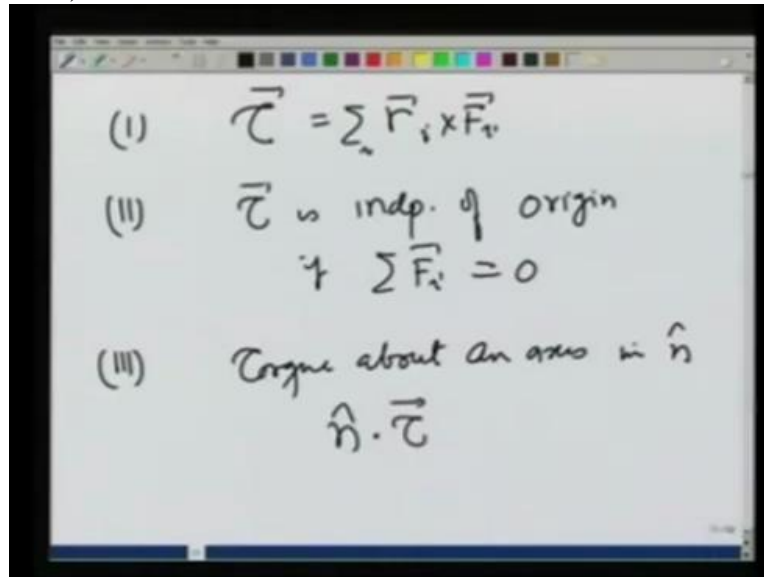 (I) $\vec{\tau} = \sum_i \vec{r}_i \times \vec{F}_i$
(II) $\vec{\tau}$ is indp. of origin
if $\sum \vec{F}_i = 0$
(III) Torque about an axis in $\hat{n}$
$\hat{n} \cdot \vec{\tau}$